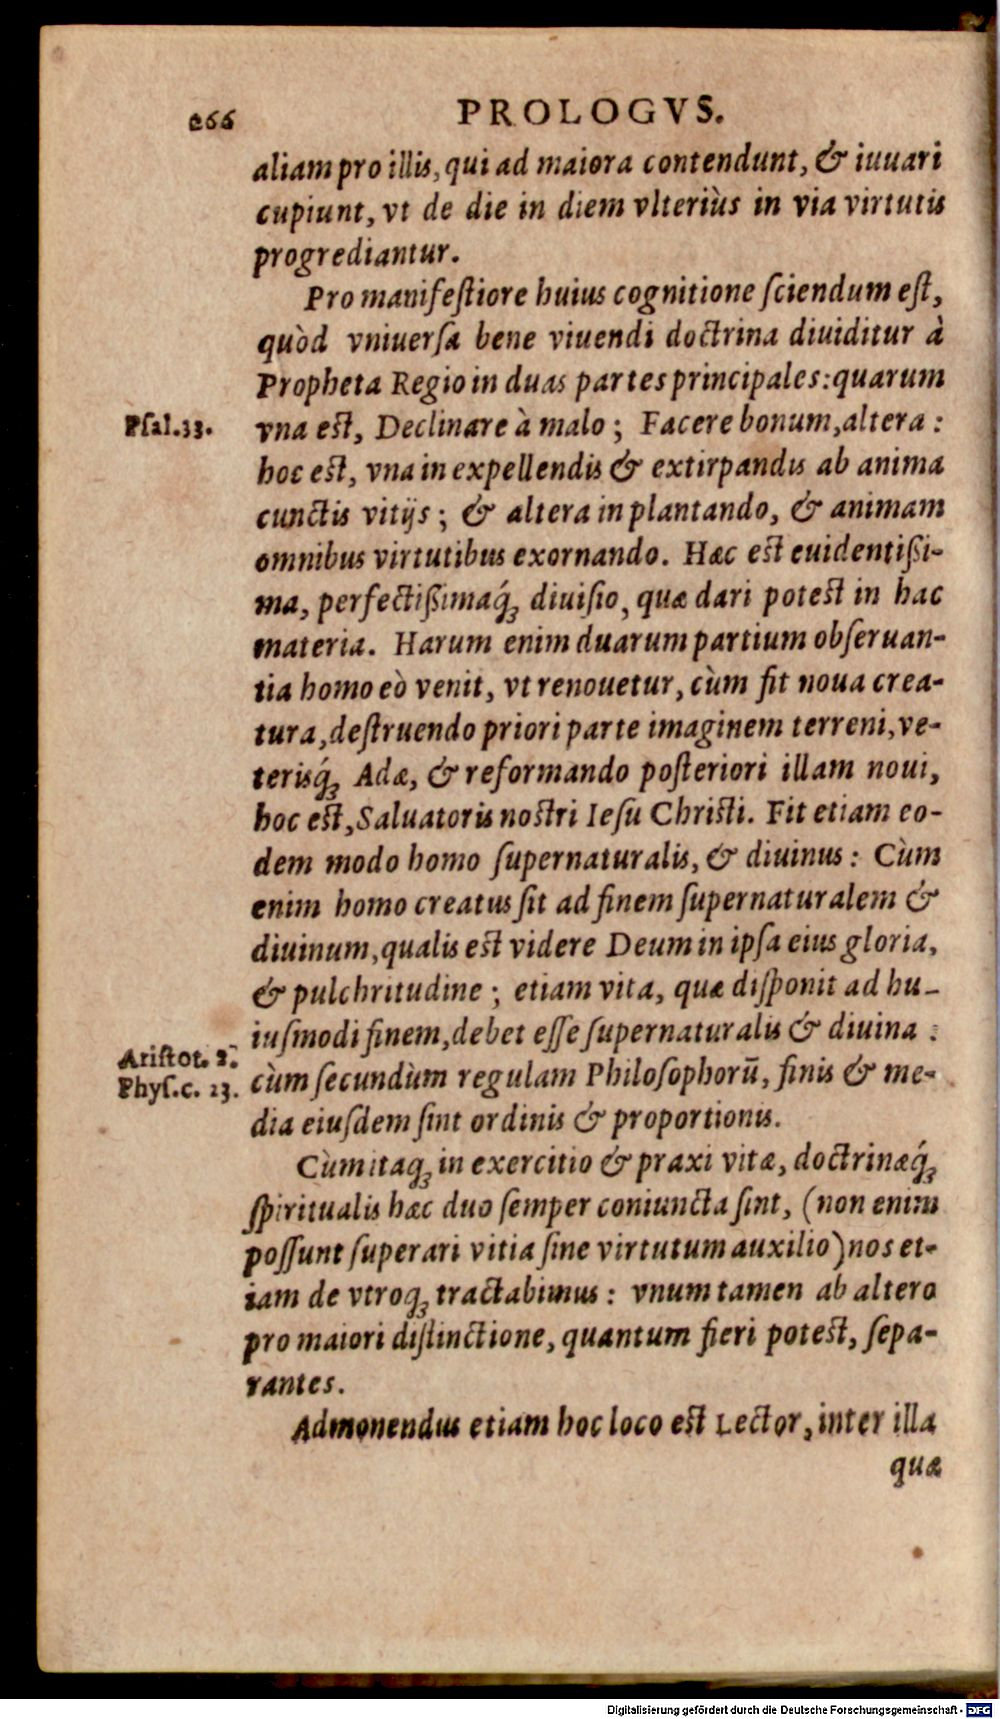 266
PROLOGVS.
aliam pro illis, qui ad maiora contendunt, & iuuari
cupiunt, vt de die in diem vlteriùs in via virtutis
progrediantur.
Pro manifeſtiore huius cognitione ſciendum eſt,
quòd vniuerſa bene viuendi doctrina diuiditur à
Propheta Regio in duas partes principales: quarum
Pſal. 33.
vna eſt, Declinare à malo; Facere bonum, altera:
hoc eſt, vna in expellendis & extirpandis ab anima
cunctis vitijs; & altera in plantando, & animam
omnibus virtutibus exornando. Hæc eſt euidentißi-
ma, perfectißimaq́ꝫ diuiſio, quæ dari poteſt in hac
materia. Harum enim duarum partium obſeruan-
tia homo eò venit, vt renouetur, cùm fit noua crea-
tura, deſtruendo priori parte imaginem terreni, ve-
terisq́ꝫ Adæ, & reformando poſteriori illam noui,
hoc eſt, Saluatoris noſtri Ieſu Chriſti. Fit etiam eo-
dem modo homo ſupernaturalis, & diuinus: Cùm
enim homo creatus ſit ad finem ſupernaturalem &
diuinum, qualis eſt videre Deum in ipſa eius gloria,
& pulchritudine; etiam vita, quæ diſponit ad hu-
iuſmodi finem, debet eſſe ſupernaturalis & diuina:
Ariſtot. 2.
Phyſ. c. 23.
cùm ſecundùm regulam Philoſophorū, finis & me-
dia eiuſdem ſint ordinis & proportionis.
Cùm itaqꝫ in exercitio & praxi vitæ, doctrinæq́ꝫ
ſpiritualis hæc duo ſemper coniuncta ſint, (non enim
poſſunt ſuperari vitia ſine virtutum auxilio) nos et-
iam de vtroqꝫ tractabimus: vnum tamen ab altero
pro maiori diſtinctione, quantum fieri poteſt, ſepa-
rantes.
Admonendus etiam hoc loco eſt Lector, inter illa
quæ
Digitalisierung gefördert durch die Deutsche Forschungsgemeinschaft - DFG